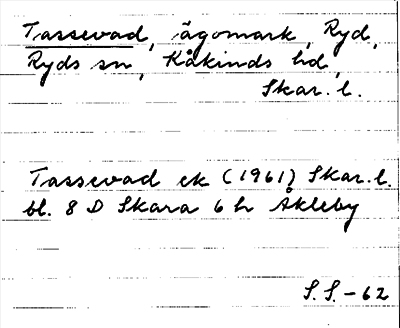 Tassevad, ägomark, Ryd,
Ryds sn, Kåkinds hd,
Skar. l.
Tassevad ek (1961) Skar. l.
bl. 8 D Skara 6 h Åkleby
S. S. - 62